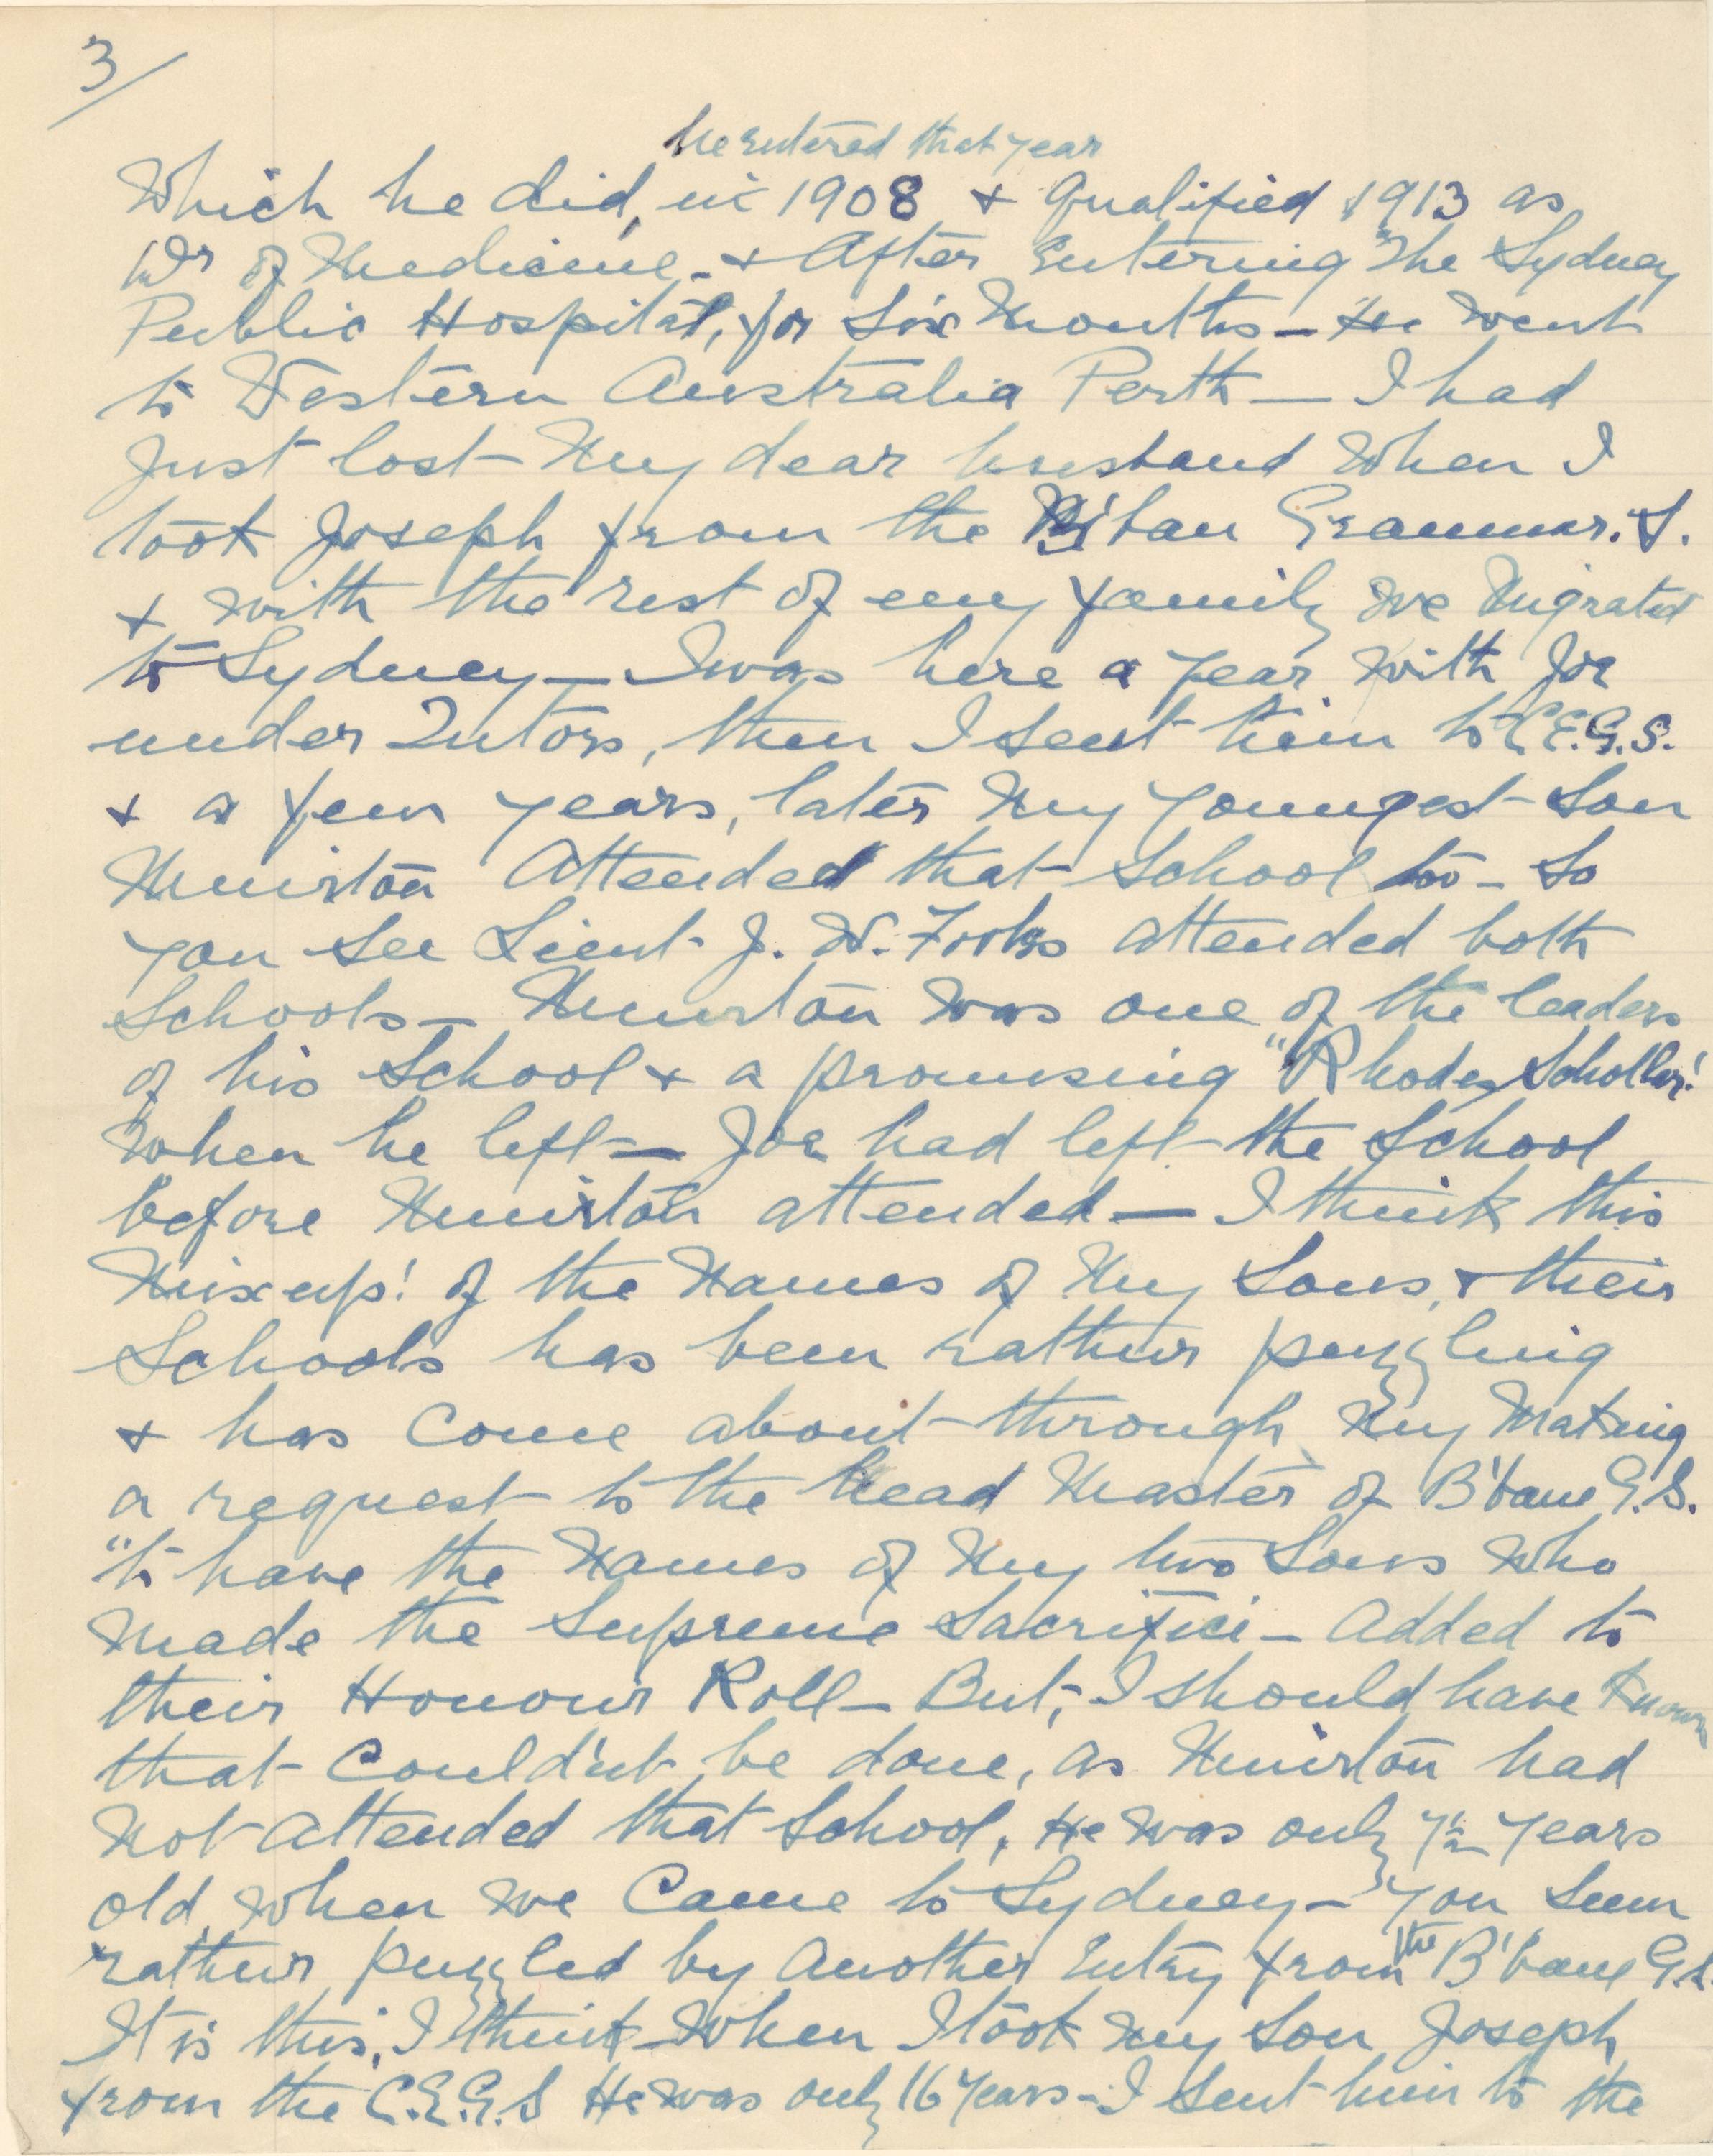 3/
he entered that year
Which he did, in 1908 & Qualified 1913 as
Dr of Medicine - & After Entering "The Sydney
Public Hospital, for Six Months - He went
to Western Australia Perth — I had
Just lost My dear husband When I
took Joseph from the B'bane Grammar. S.
& with the rest of my family we Migrated
to Sydney — I was here a year with Joe
under Tutors, then I sent him to C.E.G.S.
& a few years, later My Youngest Son
Attended that School too - So
you see Lieut J. W. attended both
Schools — was one of the leaders
of his School & a promising "Rhodes Schollar!
When he left — Joe had left the School
before attended — I think this
Mixup! of the Names of My Sons, & their
Schools has been rather puzzling
& has Come about through My Making
a request to the Head Master of B'bane G.S.
"to have the Names of My two Sons Who
Made the Supreme Sacrifici - Added to
their Honour Roll - But, I should have Known
that Could'nt be done, as had
Not Attended that School, He was only 7½ Years
old, When we Came to Sydney - You Seem
rather puzzled by Another Entry from the B'bane G.S.
It is this, I think When I took My Son Joseph
from the C.E.G.S He was only 16 Years - I Sent him to the